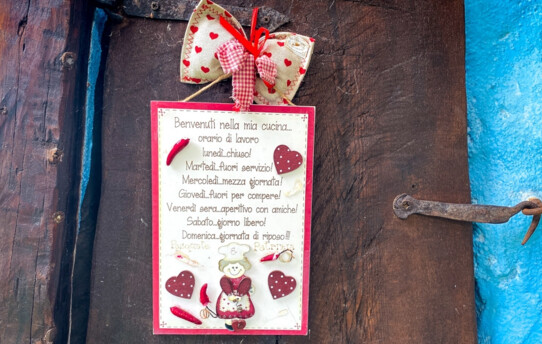 Benvenuti nella mia cucina...
orario di lavoro
lunedì...chiuso!
Martedì...fuori servizio!
Mercoledì...mezza giornata!
Giovedì...fuori per compere!
Venerdì sera...aperitivo con amiche!
Sabato...giorno libero!
Domenica...giornata di riposo!!